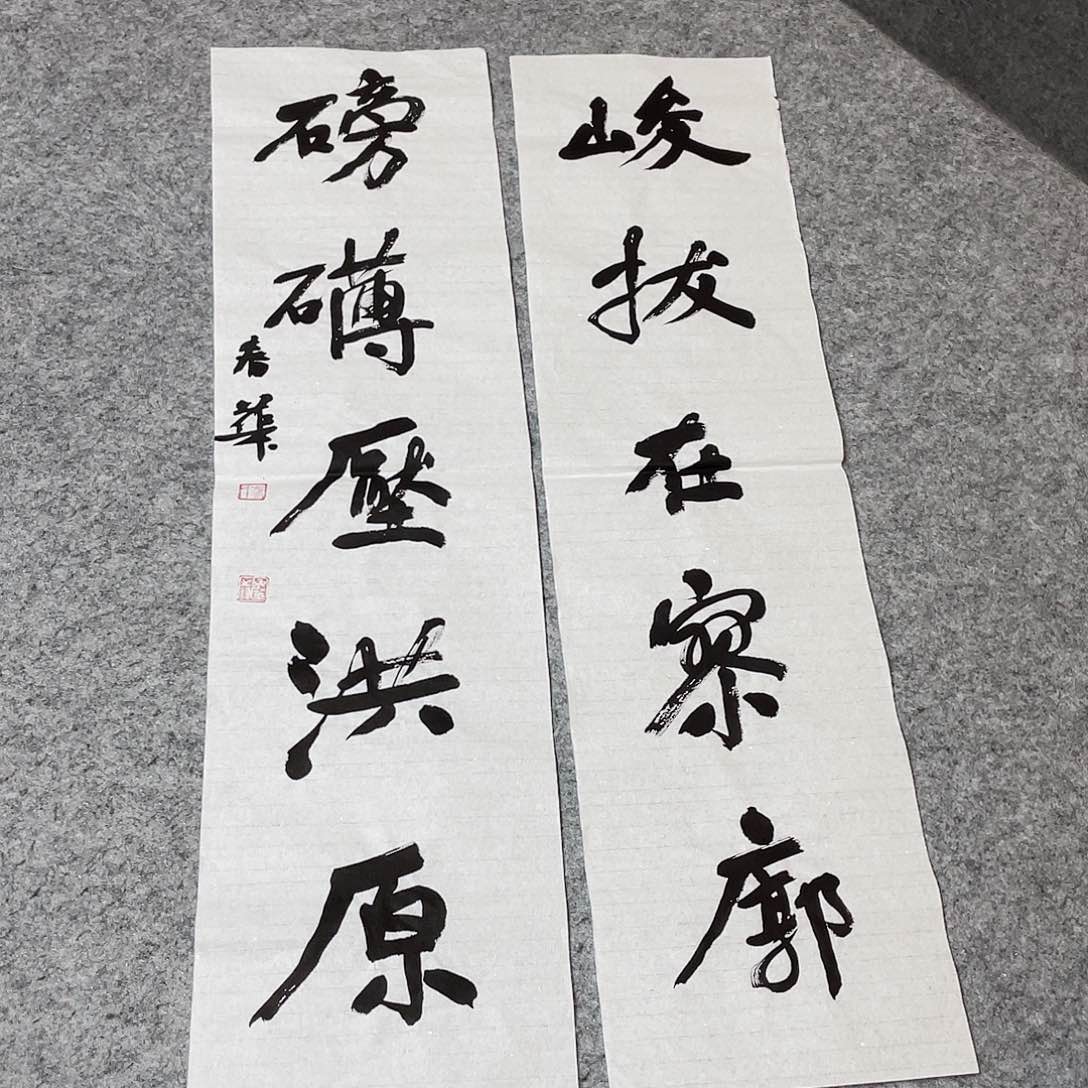 峻拔在寥廓
磅礴壓洪原
春華